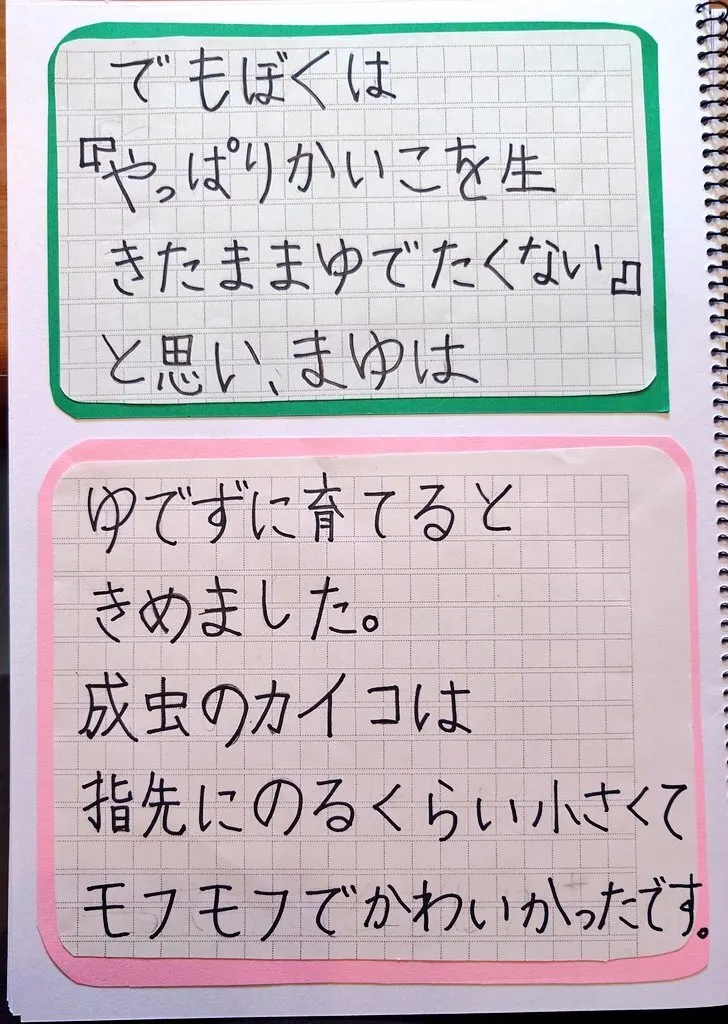 でもぼくは
『やっぱりかいこを生
きたままゆでたくない』
と思い、まゆは
ゆでずに育てると
きめました。
成虫のカイコは
指先にのるくらい小さくて
モフモフでかわいかったです。